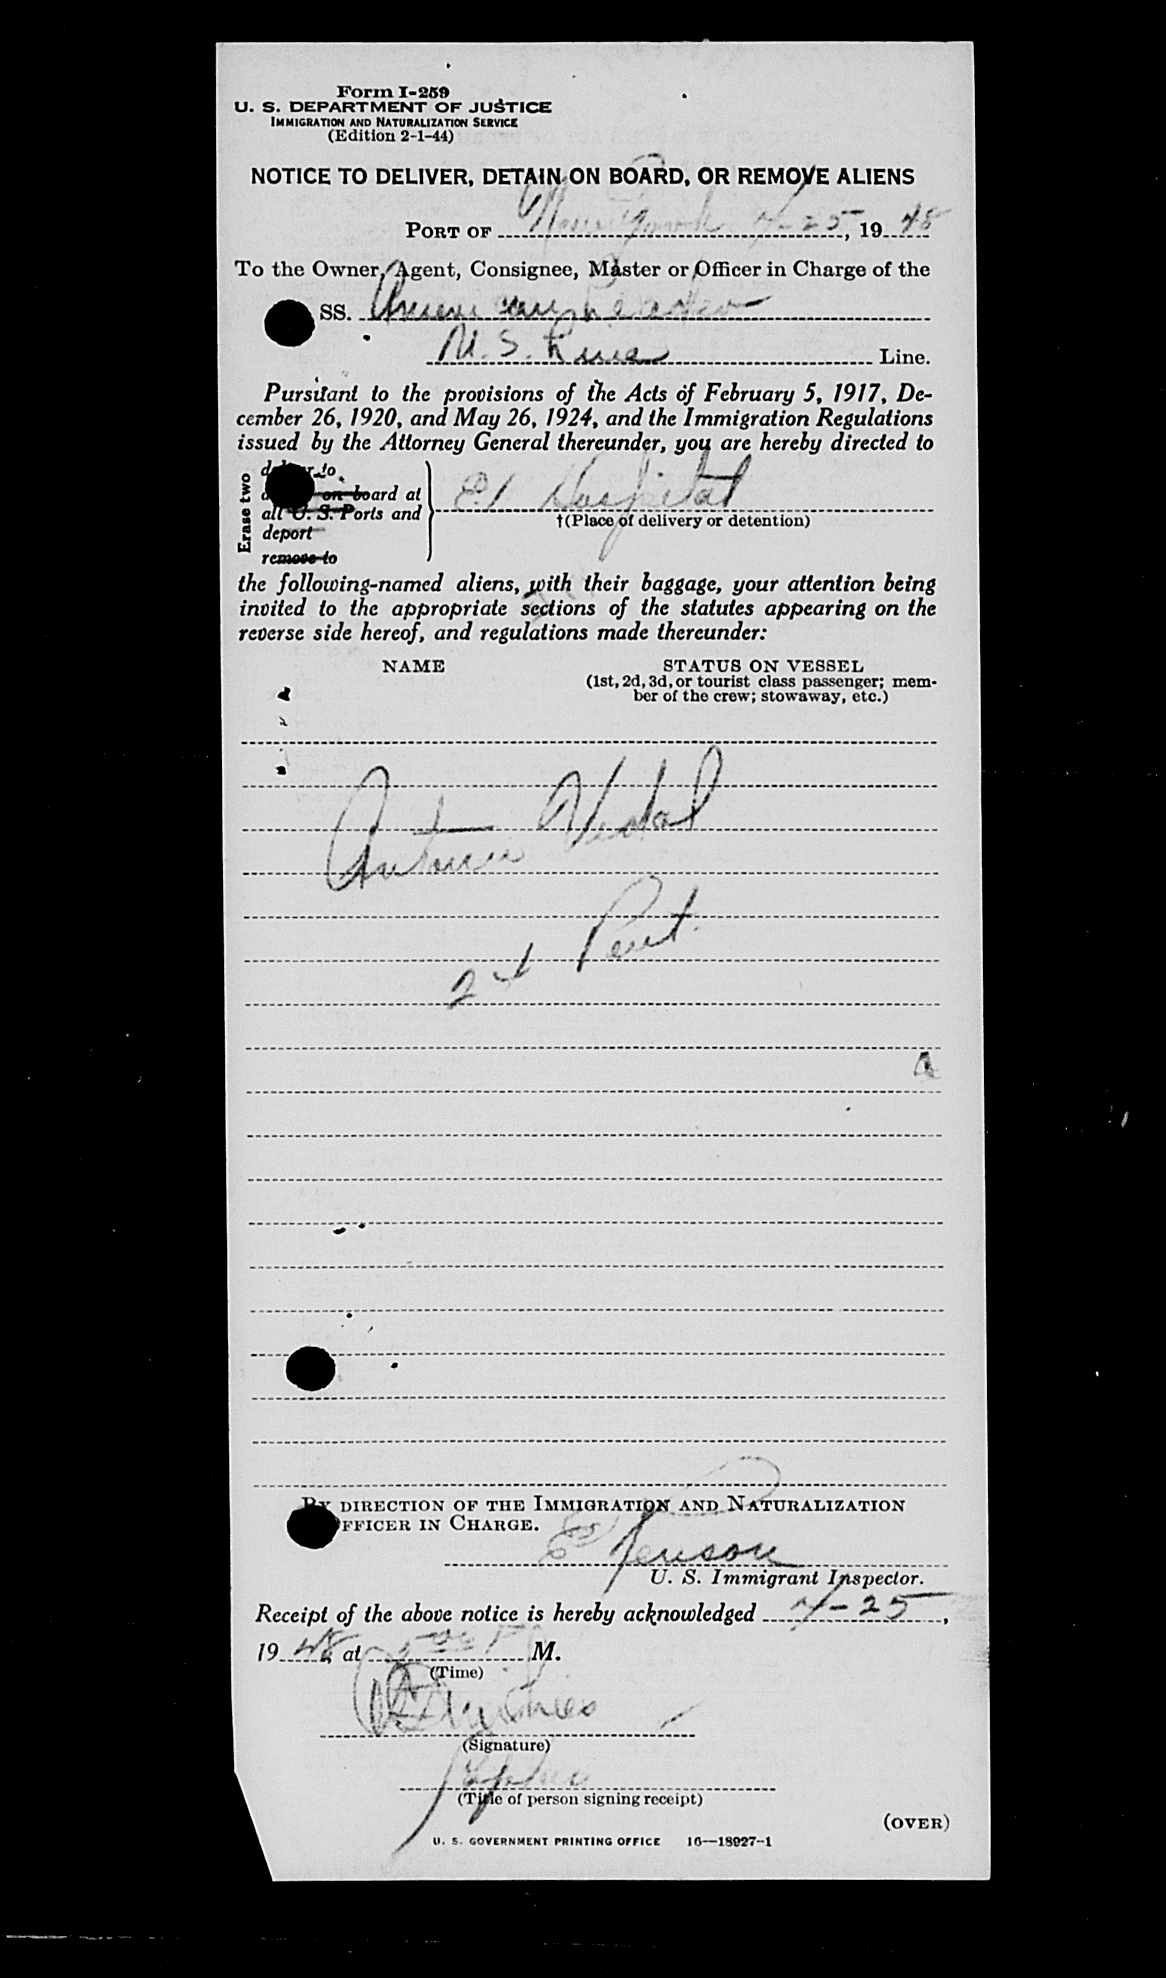 Form I-259
U. S. DEPARTMENT OF JUSTICE
IMMIGRATION AND NATURALIZATION SERVICE
(Edition 2-1-44)
NOTICE TO DELIVER, DETAIN ON BOARD, OR REMOVE ALIENS
PORT OF New York 4-25, 1948
To the Owner, Agent, Consignee, Master or Officer in Charge of the
SS. American Leader
U.S. Lines Line.
Pursuant to the provisions of the Acts of February 5, 1917, De-
cember 26, 1920, and May 26, 1924, and the Immigration Regulations
issued by the Attorney General thereunder, you are hereby directed to
Erase two
to
on board at
all U. S. Ports and
deport
remove to
EI Hospital
†(Place of delivery or detention)
the following-named aliens, with their baggage, your attention being
invited to the appropriate sections of the statutes appearing on the
reverse side hereof, and regulations made thereunder:
NAME STATUS ON VESSEL
(1st, 2d, 3d, or tourist class passenger; mem-
ber of the crew; stowaway, etc.)
Antonio Vidal
BY DIRECTION OF THE IMMIGRATION AND NATURALIZATION
OFFICER IN CHARGE.
U. S. Immigrant Inspector.
Receipt of the above notice is hereby acknowledged 4-25,
1948, at M.
(Time)
(Signature)
(Title of person signing receipt)
(OVER)
U. S. GOVERNMENT PRINTING OFFICE 16—18927-1